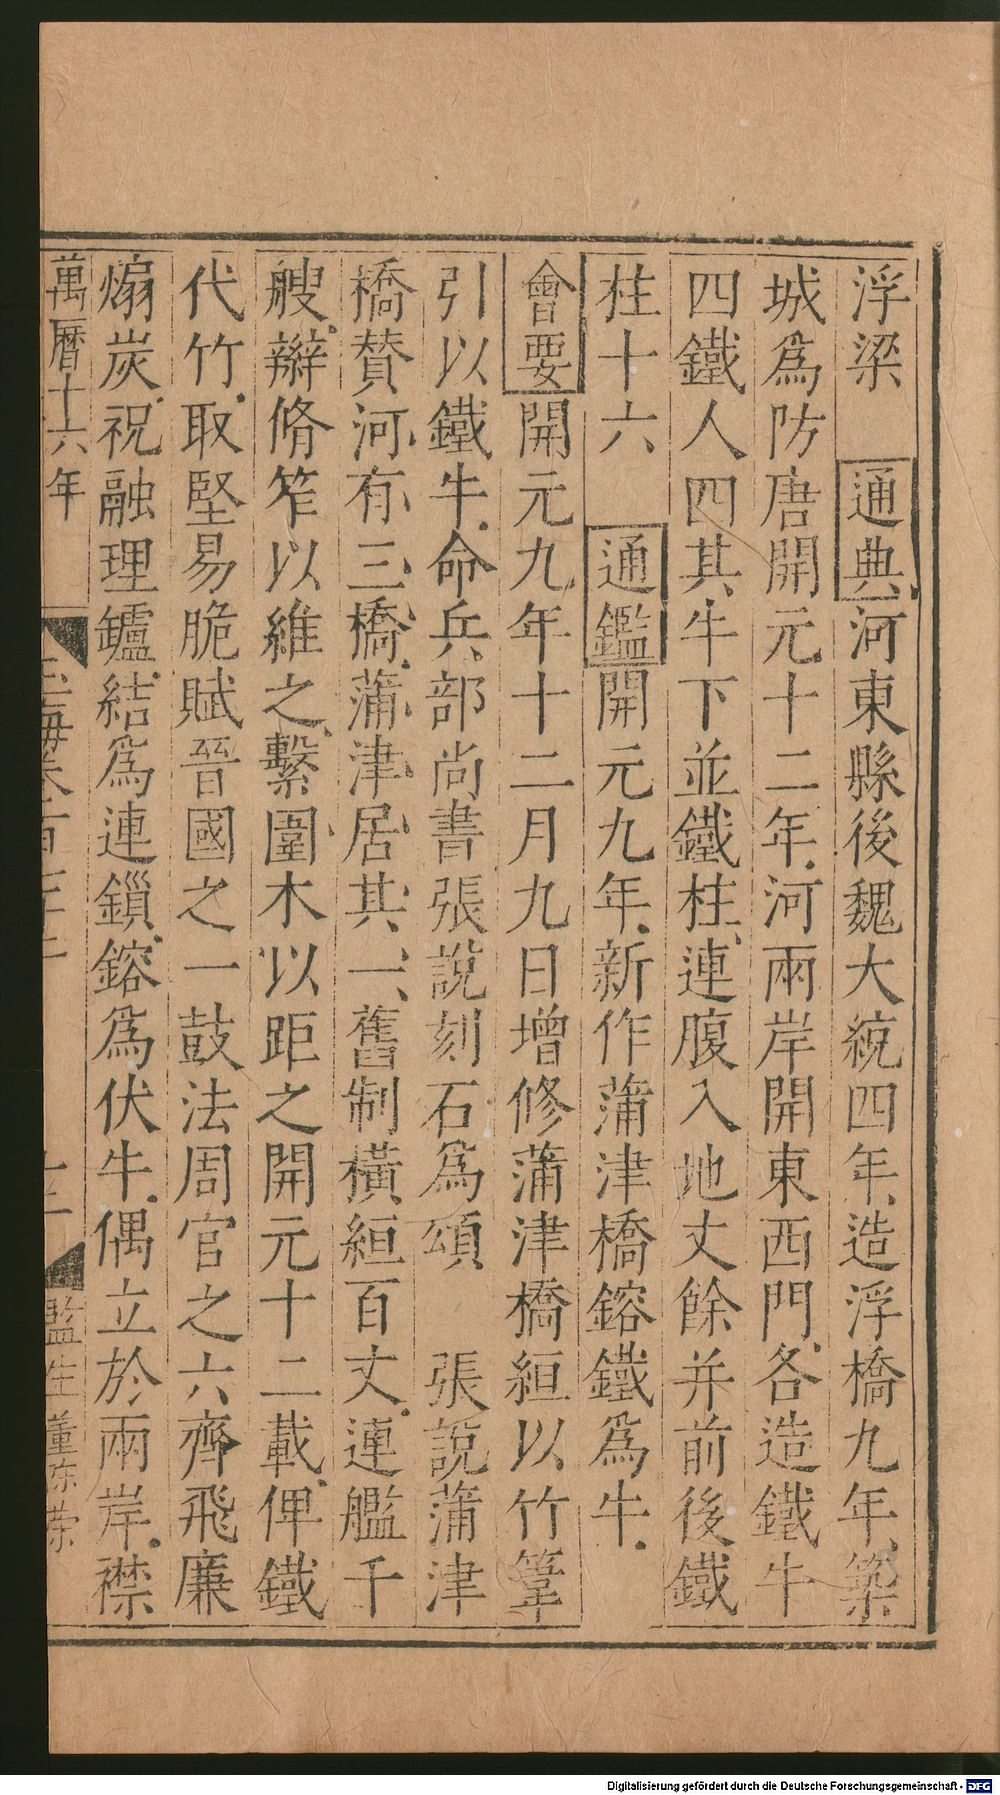 浮梁　通典河東縣後魏大統四年造浮橋九年築
城爲防唐開元十二年河兩岸開東西門各造鐵牛
四鐵人四其牛下並鐵柱連腹入地丈餘并前後鐵
柱十六　通鑑開元九年新作蒲津橋鎔鐵爲牛
會要開元九年十二月九日增修蒲津橋絙以竹葦
引以鐵牛命兵部尚書張說刻石爲頌　張說蒲津
橋贊河有三橋蒲津居其一舊制橫絙百丈連艦千
艘辮脩笮以維之繫圍木以距之開元十二載俾鐵
代竹取堅易脆賦晉國之一鼓法周官之六齊飛廉
煽炭祝融理鑪結爲連鎖鎔爲伏牛偶立於兩岸襟
萬曆十六年
監生董
Digitalisierung gefördert durch die Deutsche Forschungsgemeinschaft - DFG